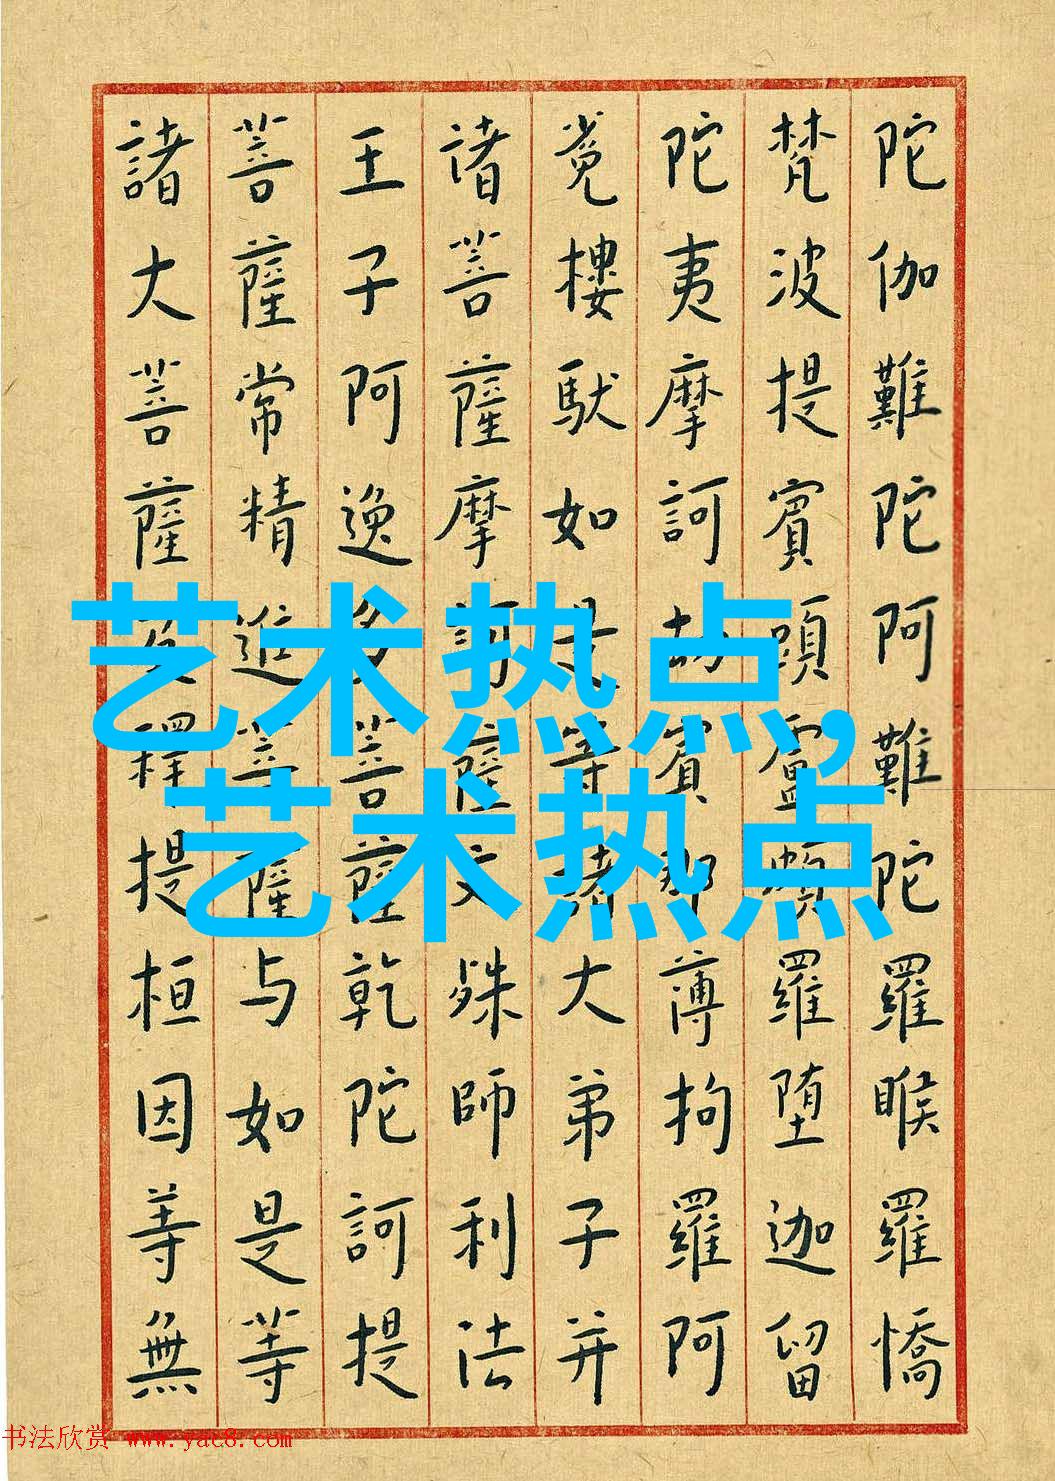 陀伽難陀阿難陀羅睺羅憍
梵波提賓頭盧頗羅堕迦留
陀夷摩訶劫賓那薄拘羅阿
㝹樓馱如是等諸大弟子并
諸菩薩摩訶薩文殊師利法
王子阿逸多菩薩乾陀訶提
菩薩常精進菩薩与如是等
諸大菩薩及釋提桓因等無
艺术热点,
艺术热点
书法欣赏 www.yac8.com